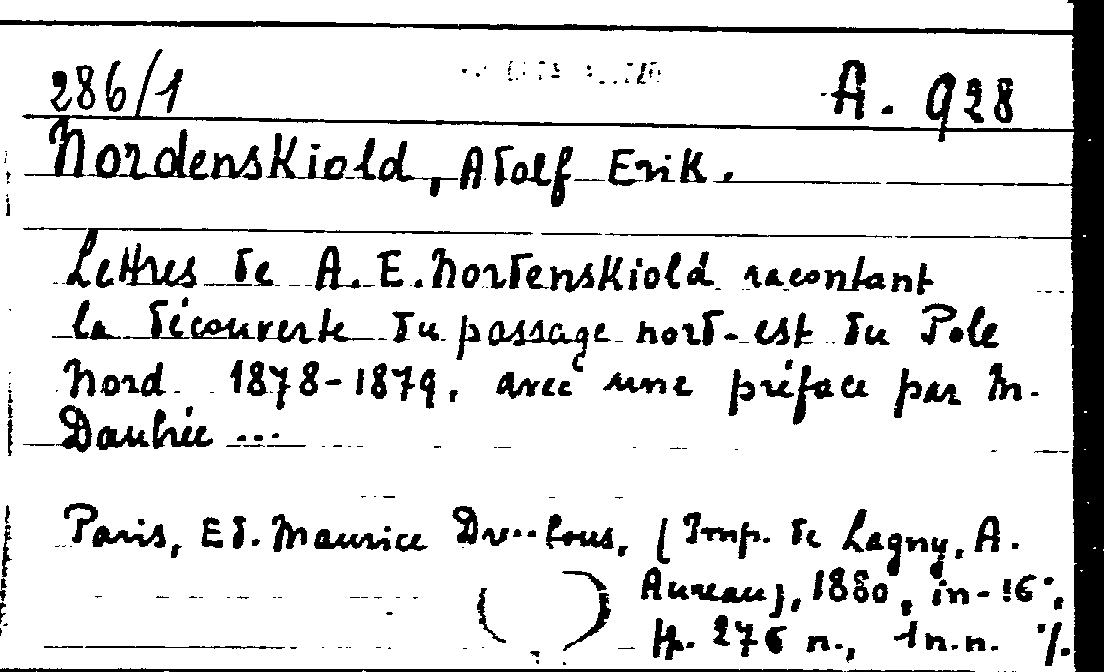 286/1 A. 928
Nordenskiold, Adolf Erik.
Lettres de A. E. Nordenskiold racontant
la découverte du passage nord-est du Pole
Nord 1878-1879, avec une préface par M.
Daubrée ...
Paris, Ed. Maurice Dreyfous, [Imp. de Lagny, A.
Aureau], 1880, in-16°,
pp. 276 n., 1 n.n. %.